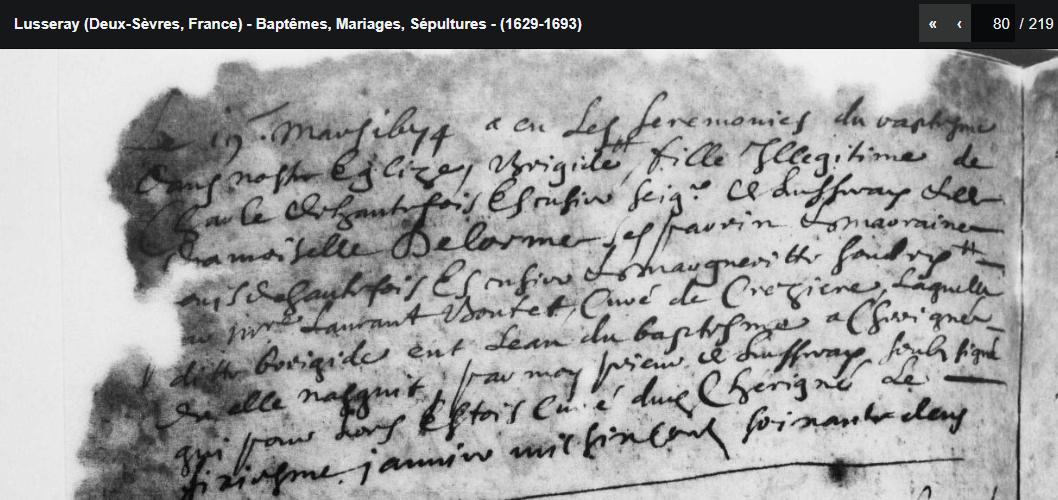 Lusseray (Deux-Sèvres, France) - Baptêmes, Mariages, Sépultures - (1629-1693)
« ‹ 80 / 219
Le a eu les seremonies du baptesme
dans nostre Eglize Brigide, fille Illegitime de
Charle dehautefois Escuier seigr de Lussray et de
damoiselle Delorme ses parrin et marraine
dehautefois Escuier et margueritte
mre Laurant Bontet, Curé de Crezieres, laquelle
ditte brigide eut leau du baptesme a Cherigné
ou elle nasquit, par moy prieur de Lussray soubs signé
qui pour lors Estois Curé dud Cherigné Le
janvier mil sin Cent soixante deux